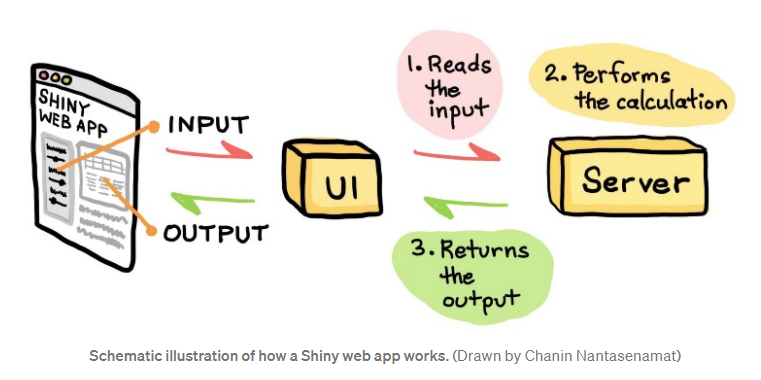 SHINY
WEB APP
INPUT
OUTPUT
UI
1. Reads
the
input
2. Performs
the calculation
Server
3. Returns
the
output
Schematic illustration of how a Shiny web app works. (Drawn by Chanin Nantasenamat)